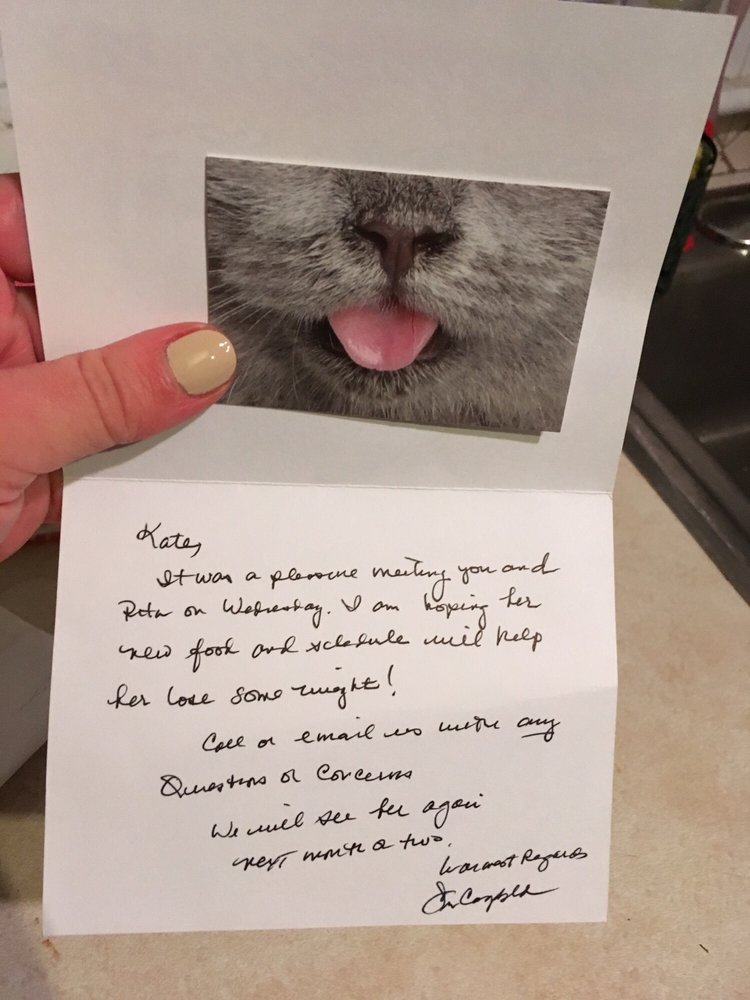 Kate,
It was a pleasure meeting you and
Rita on Wednesday. I am hoping her
new food and schedule will help
her lose some weight!
Call or email us with any
Questions or Concerns
We will see her again
next month or two.
Warmest Regards
Campbell